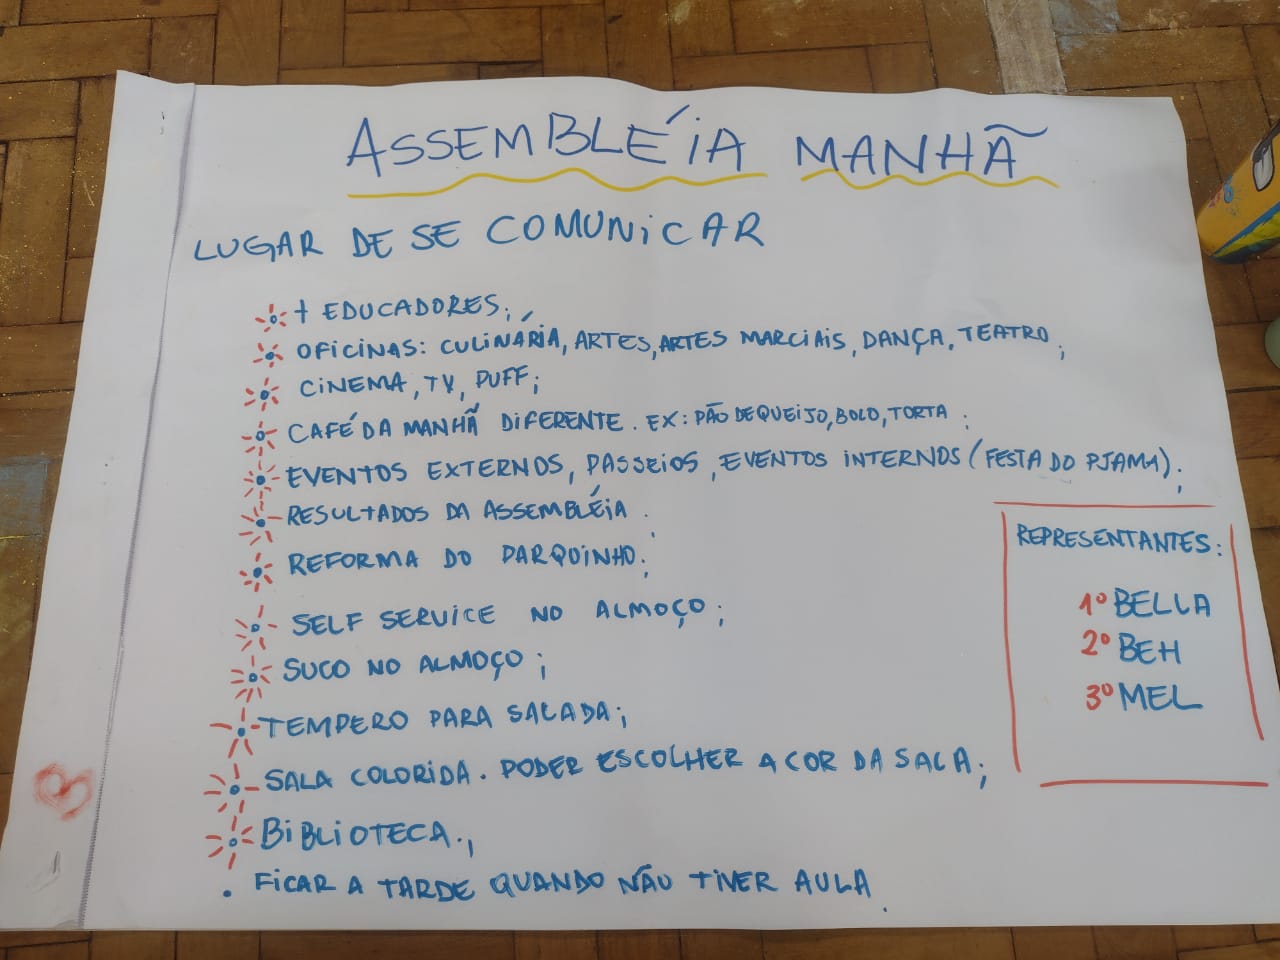 ASSEMBLÉIA MANHÃ
LUGAR DE SE COMUNICAR
+ EDUCADORES;
OFICINAS: CULINÁRIA, ARTES, ARTES MARCIAIS, DANÇA, TEATRO;
CINEMA, TV, PUFF;
CAFÉ DA MANHÃ DIFERENTE. EX: PÃO DE QUEIJO, BOLO, TORTA;
EVENTOS EXTERNOS, PASSEIOS, EVENTOS INTERNOS (FESTA DO PJAMA);
RESULTADOS DA ASSEMBLÉIA.
REFORMA DO PARQUINHO;
SELF SERVICE NO ALMOÇO;
SUCO NO ALMOÇO;
TEMPERO PARA SALADA;
SALA COLORIDA. PODER ESCOLHER A COR DA SALA;
BIBLIOTECA.;
. FICAR A TARDE QUANDO NÃO TIVER AULA.
REPRESENTANTES:
1º BELLA
2º BEH
3º MEL